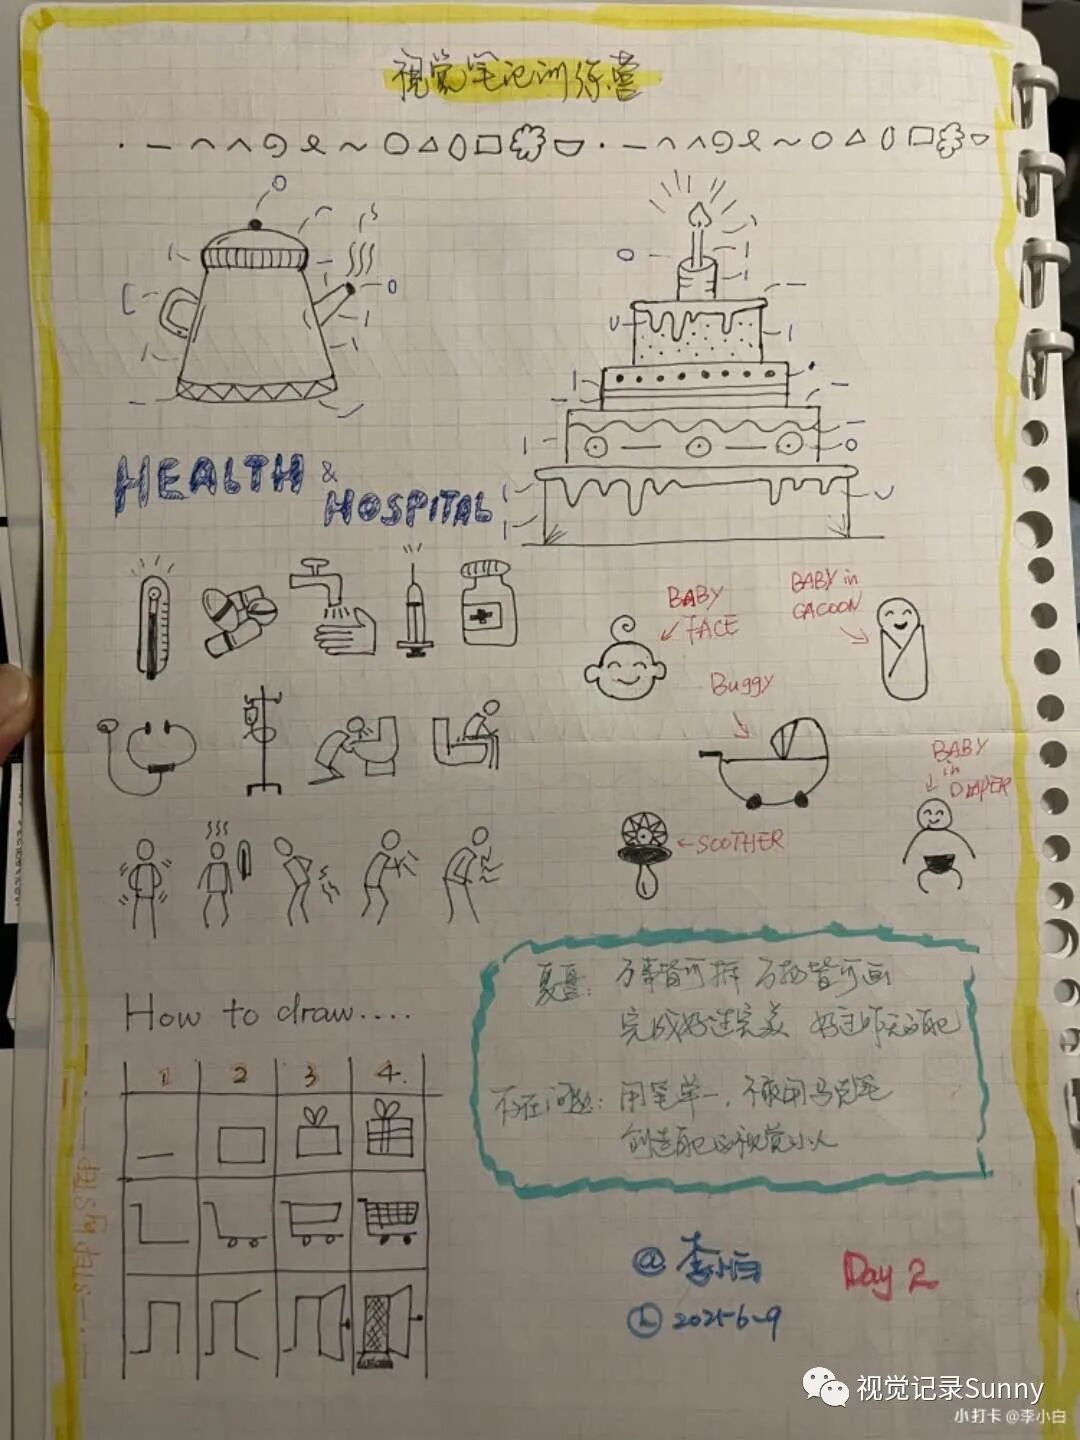 视觉笔记训练营
HEALTH &
HOSPITAL
BABY
FACE
BABY in
CACOON
Buggy
BABY
in
DIAPER
SOOTHER
How to draw....
1 2 3 4.
夏夏: 万事皆可拆 万物皆可画
完成好过完美 好过昨天的自己
存在问题: 用笔单一, 不敢用马克笔
创造自己的视觉小人
@李小白
2021-6-9
Day 2
视觉记录Sunny
小打卡 @李小白